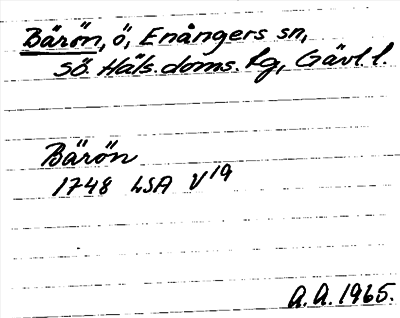 Bärön, ö, Enångers sn,
sö. Häls. doms. hg, Gävl. l.
Bärön
1748 LSA V19
A. A. 1965.